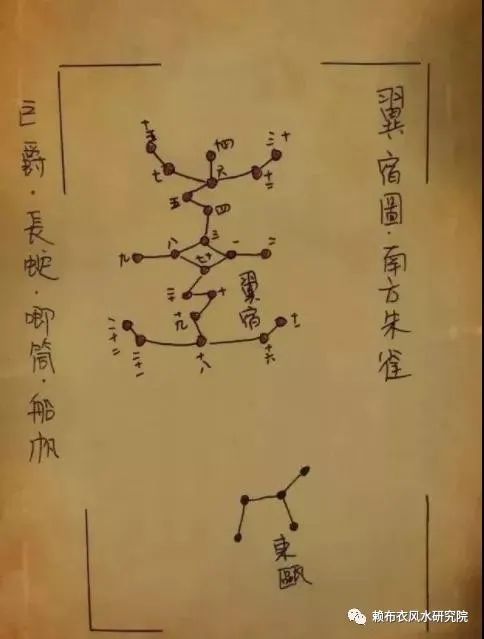 翼宿圖·南方朱雀
巨爵·長蛇·唧筒·船帆
十五
十四
二十
七
六
十三
五
四
三
九
八
一
二
十七
二十
十
十九
翼宿
二十二
二十一
十八
十六
十一
東甌
赖布衣风水研究院